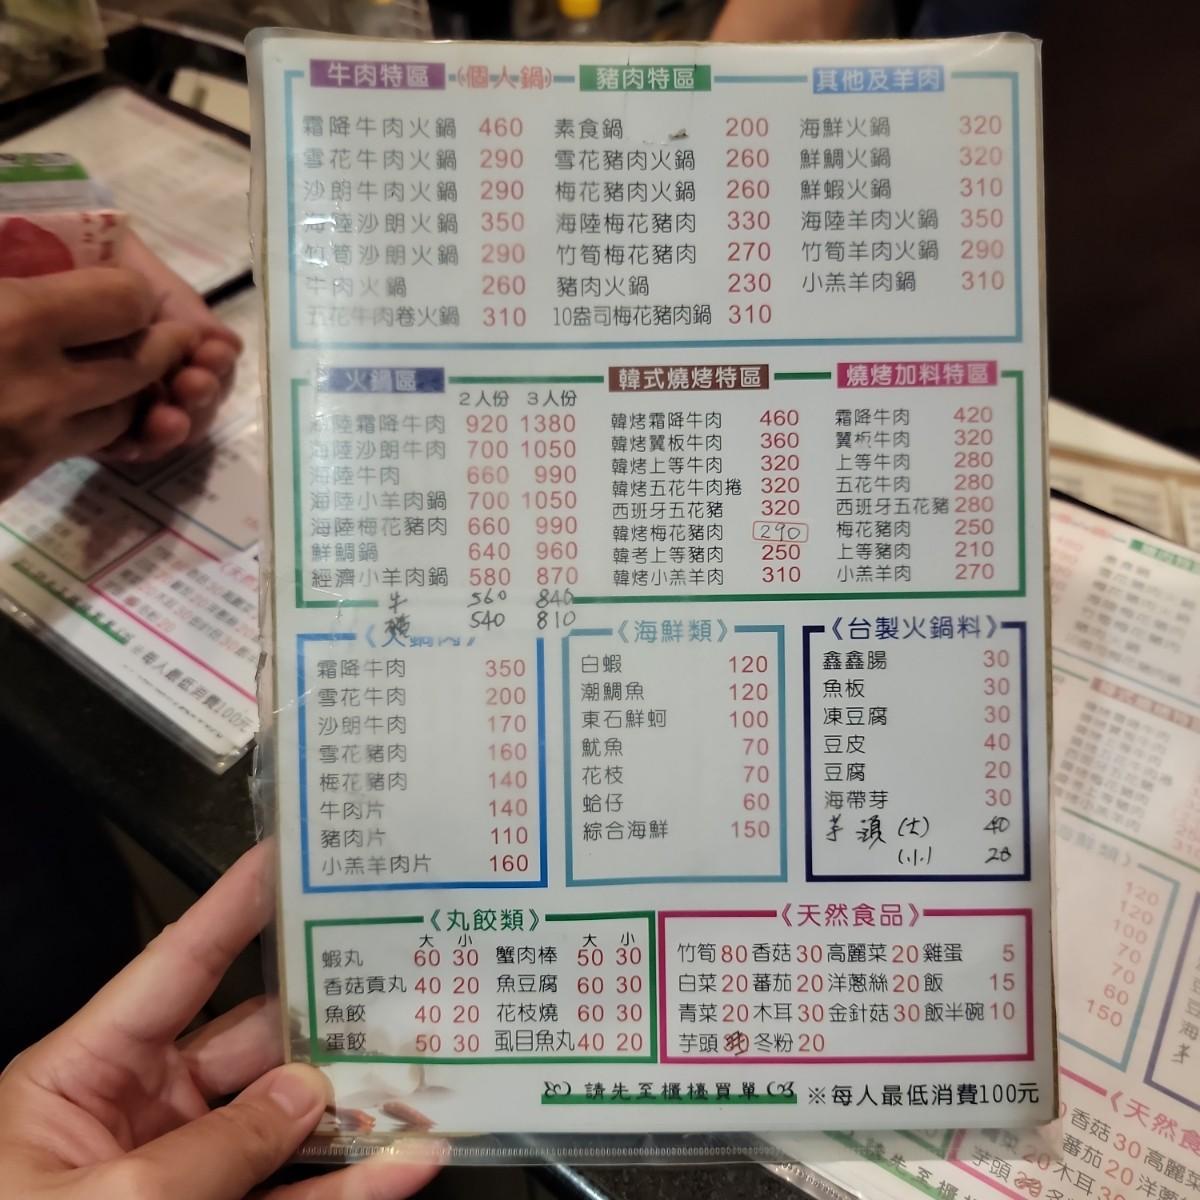 牛肉特區 《個人鍋》 豬肉特區 其他及羊肉
霜降牛肉火鍋 460 素食鍋 200 海鮮火鍋 320
雪花牛肉火鍋 290 雪花豬肉火鍋 260 鮮鯛火鍋 320
沙朗牛肉火鍋 290 梅花豬肉火鍋 260 鮮蝦火鍋 310
海陸沙朗火鍋 350 海陸梅花豬肉 330 海陸羊肉火鍋 350
竹筍沙朗火鍋 290 竹筍梅花豬肉 270 竹筍羊肉火鍋 290
牛肉火鍋 260 豬肉火鍋 230 小羔羊肉鍋 310
五花牛肉卷火鍋 310 10盎司梅花豬肉鍋 310
火鍋區
2人份 3人份
海陸霜降牛肉 920 1380
海陸沙朗牛肉 700 1050
海陸牛肉 660 990
海陸小羊肉鍋 700 1050
海陸梅花豬肉 660 990
鮮鯛鍋 640 960
經濟小羊肉鍋 580 870
牛 560 840
豬 540 810
韓式燒烤特區
韓烤霜降牛肉 460
韓烤翼板牛肉 360
韓烤上等牛肉 320
韓烤五花牛肉捲 320
西班牙五花豬 320
韓烤梅花豬肉 290
韓考上等豬肉 250
韓烤小羔羊肉 310
燒烤加料特區
霜降牛肉 420
翼板牛肉 320
上等牛肉 280
五花牛肉 280
西班牙五花豬 280
梅花豬肉 250
上等豬肉 210
小羔羊肉 270
《火鍋肉》
霜降牛肉 350
雪花牛肉 200
沙朗牛肉 170
雪花豬肉 160
梅花豬肉 140
牛肉片 140
豬肉片 110
小羔羊肉片 160
《海鮮類》
白蝦 120
潮鯛魚 120
東石鮮蚵 100
魷魚 70
花枝 70
蛤仔 60
綜合海鮮 150
《台製火鍋料》
鑫鑫腸 30
魚板 30
凍豆腐 30
豆皮 40
豆腐 20
海帶芽 30
芋頭 (大) 40
(小) 20
《丸餃類》
大 小 大 小
蝦丸 60 30 蟹肉棒 50 30
香菇貢丸 40 20 魚豆腐 60 30
魚餃 40 20 花枝燒 60 30
蛋餃 50 30 虱目魚丸 40 20
《天然食品》
竹筍 80 香菇 30 高麗菜 20 雞蛋 5
白菜 20 蕃茄 20 洋蔥絲 20 飯 15
青菜 20 木耳 30 金針菇 30 飯半碗 10
芋頭 冬粉 20
請先至櫃檯買單 ※每人最低消費100元